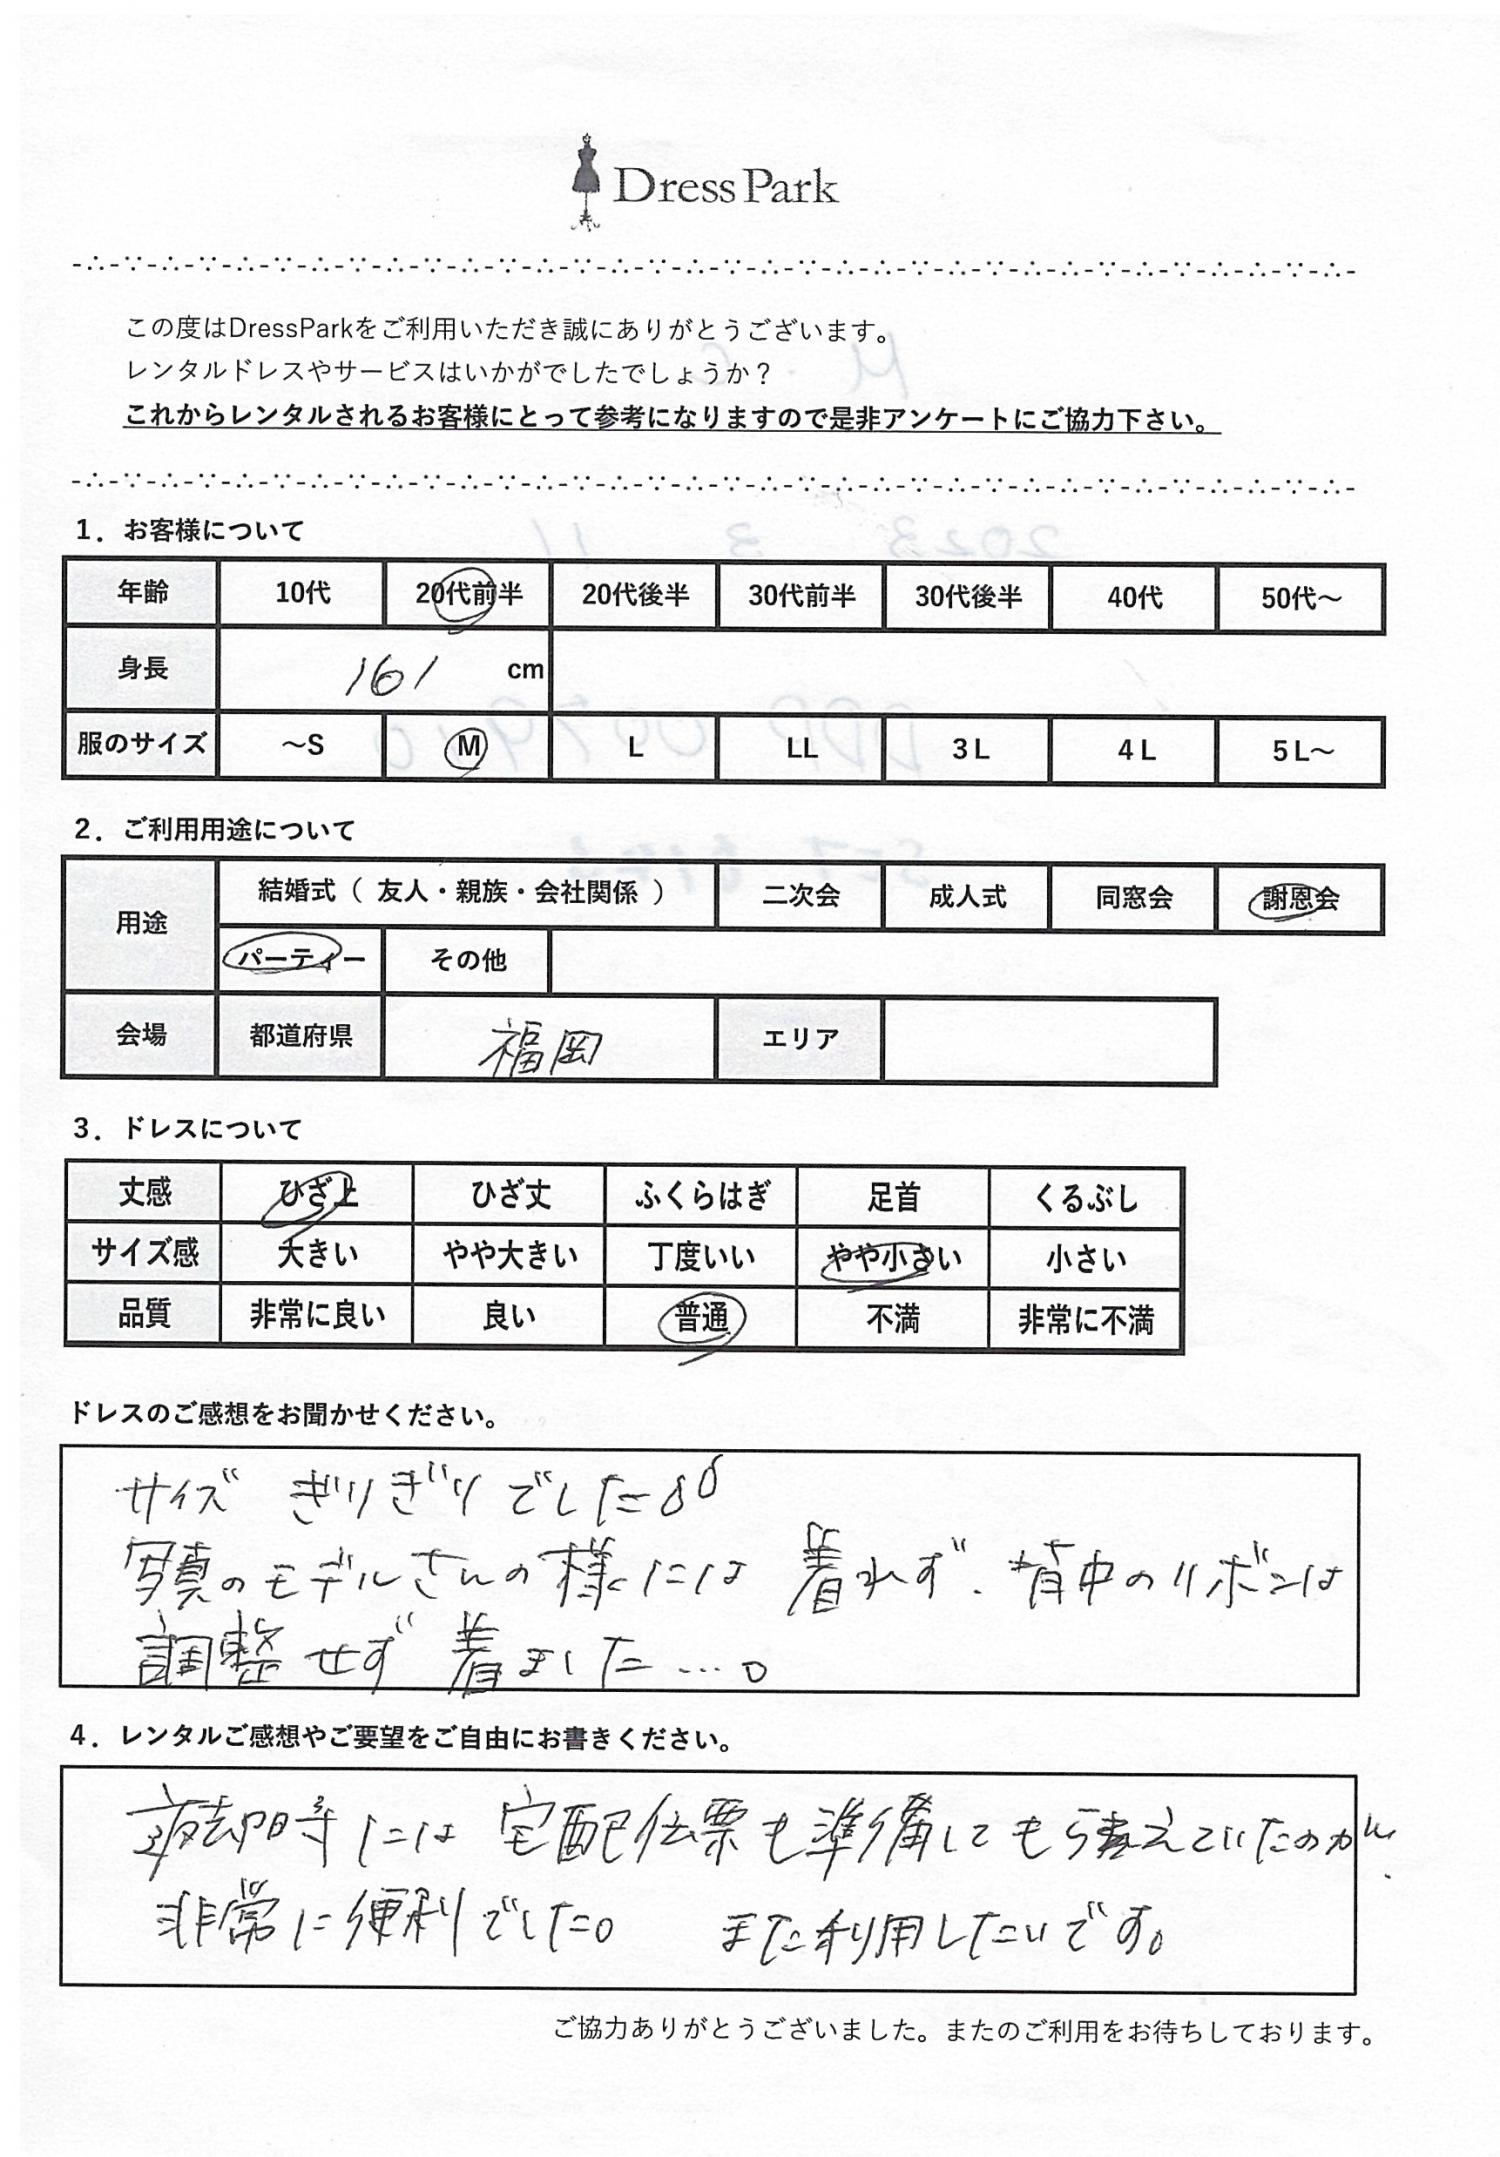 Dress Park
この度はDressParkをご利用いただき誠にありがとうございます。
レンタルドレスやサービスはいかがでしたでしょうか？
これからレンタルされるお客様にとって参考になりますので是非アンケートにご協力下さい。
1．お客様について
年齢 10代 20代前半 20代後半 30代前半 30代後半 40代 50代～
身長 161 cm
服のサイズ ～S M L LL 3L 4L 5L～
2．ご利用用途について
用途 結婚式（ 友人・親族・会社関係 ） 二次会 成人式 同窓会 謝恩会
パーティー その他
会場 都道府県 福岡 エリア
3．ドレスについて
丈感 ひざ上 ひざ丈 ふくらはぎ 足首 くるぶし
サイズ感 大きい やや大きい 丁度いい やや小さい 小さい
品質 非常に良い 良い 普通 不満 非常に不満
ドレスのご感想をお聞かせください。
サイズ ぎりぎりでした
写真のモデルさんの様には 着れず、背中のリボンは
調整せず 着ました…。
4．レンタルご感想やご要望をご自由にお書きください。
返却時には 宅配伝票も準備してもらえていたのが、
非常に便利でした。 また利用したいです。
ご協力ありがとうございました。またのご利用をお待ちしております。